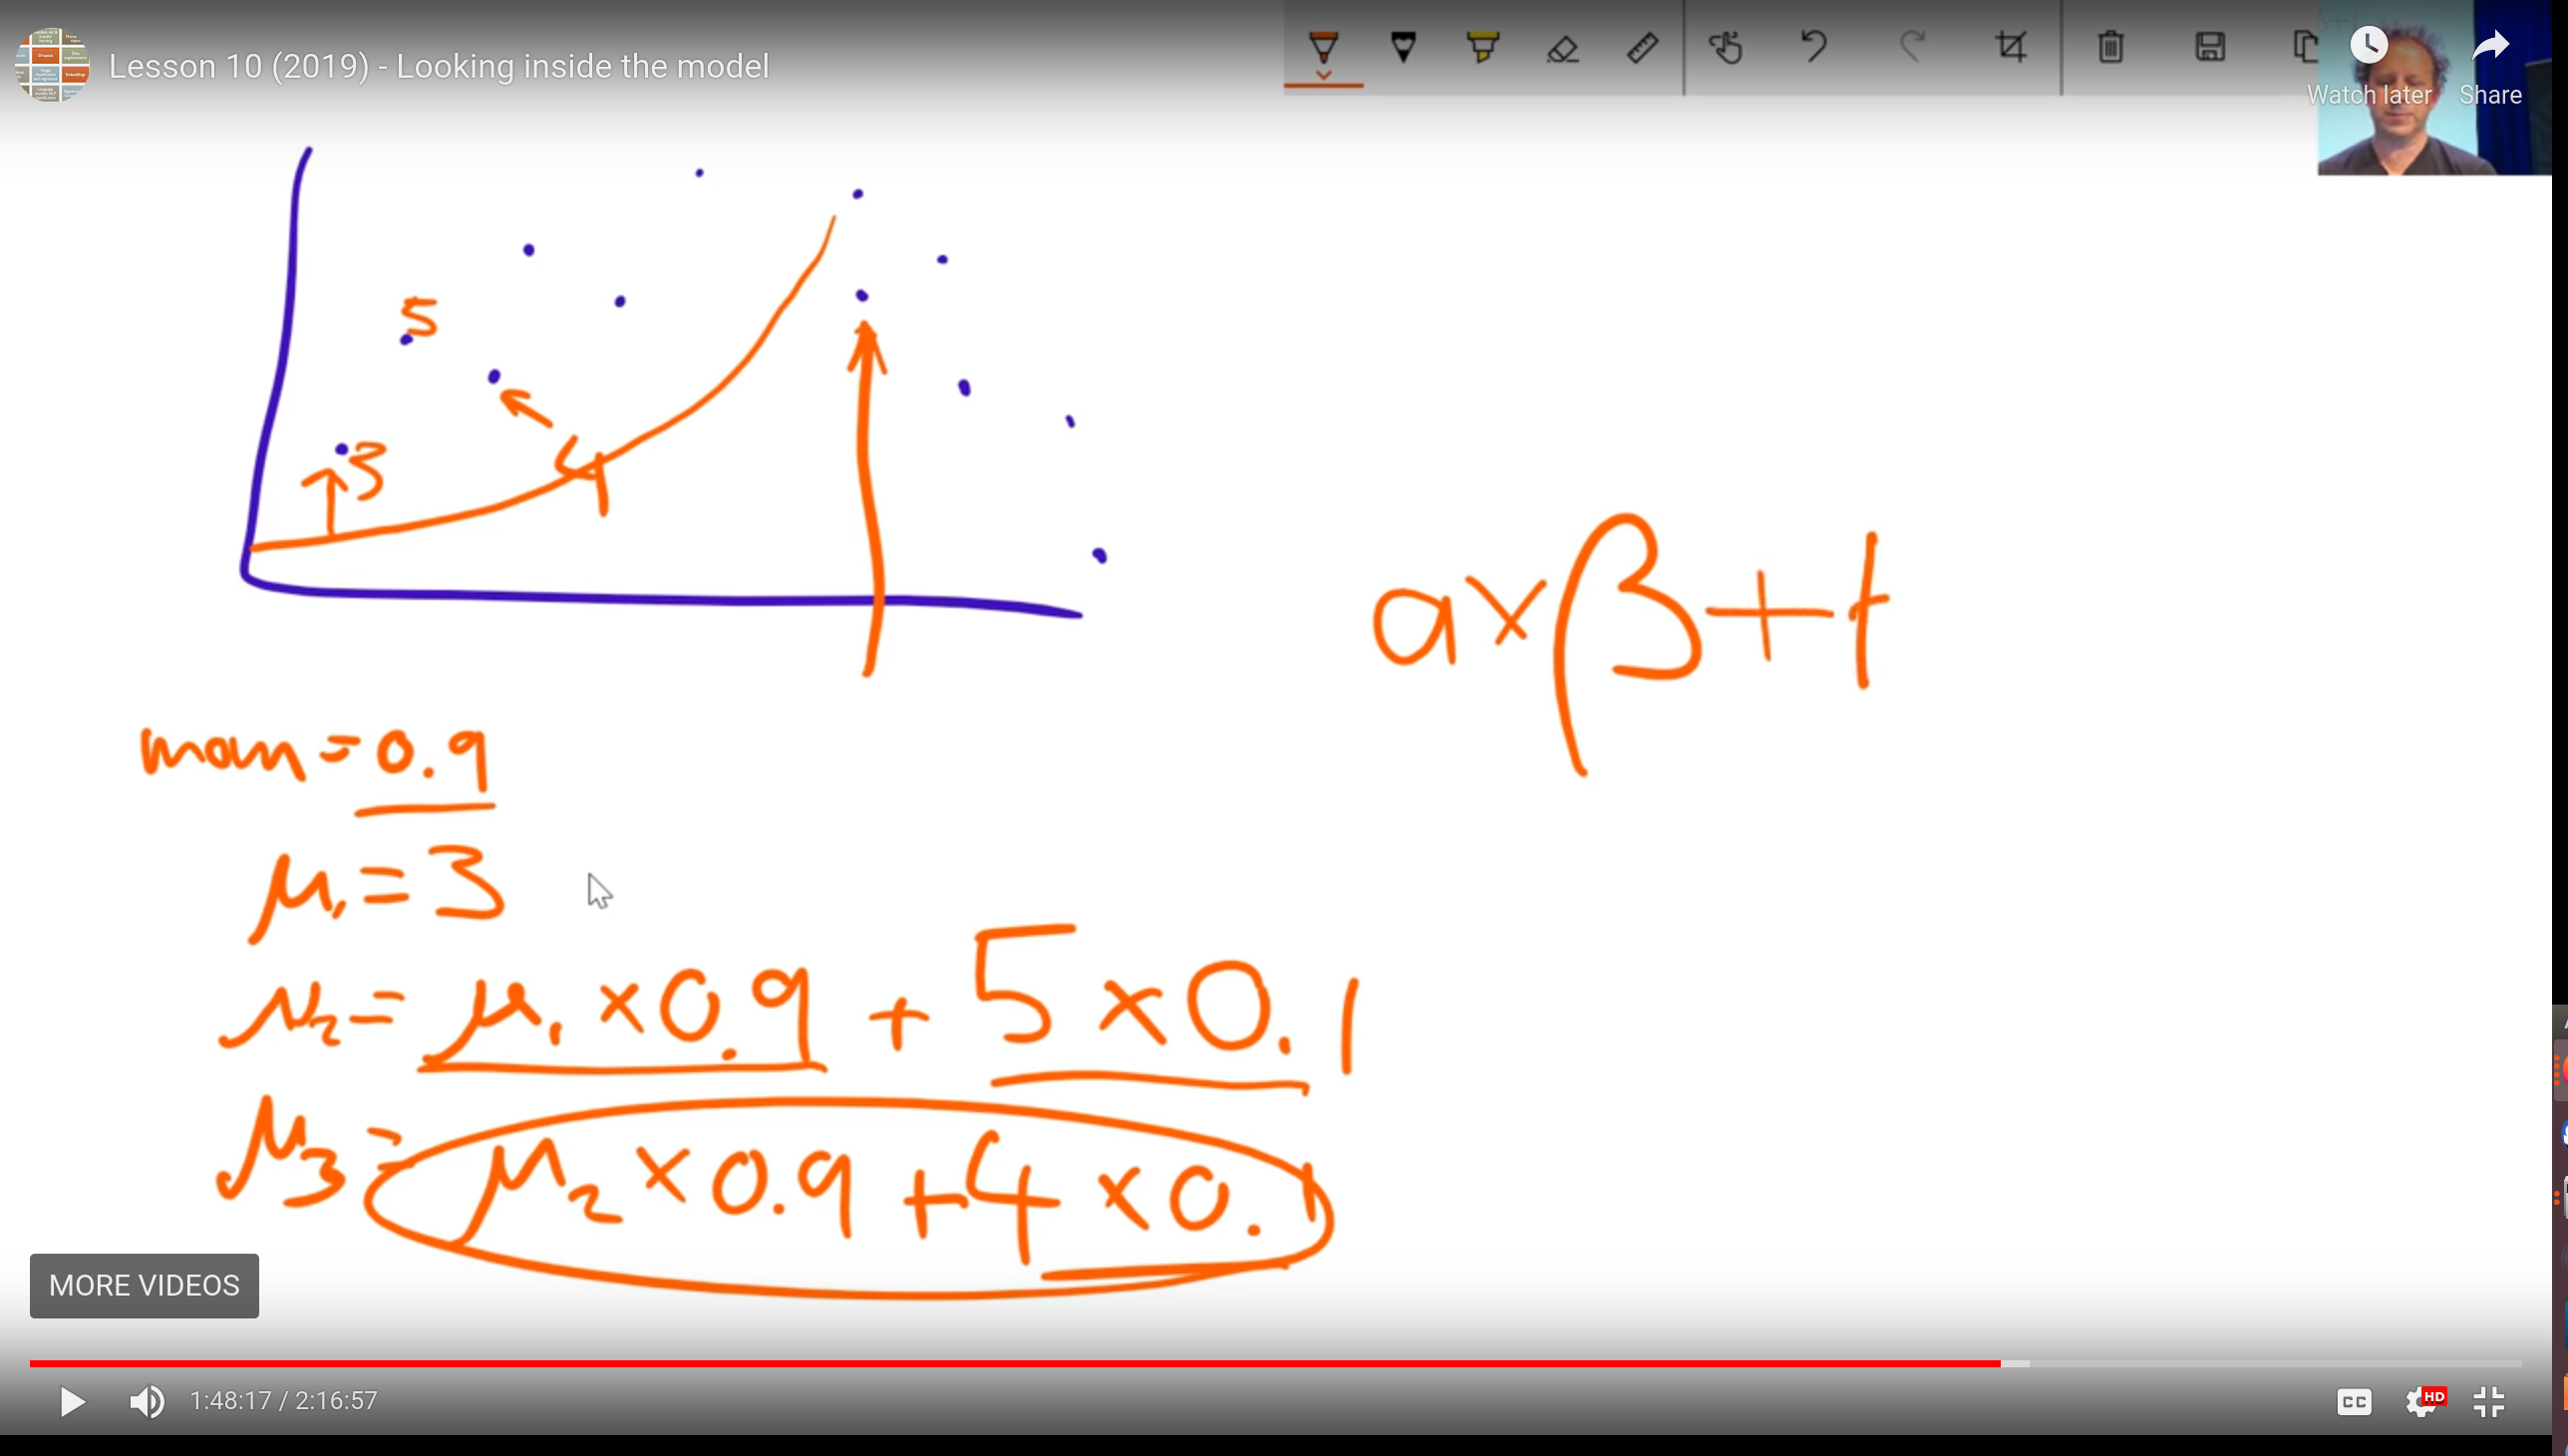 Lesson 10 (2019) - Looking inside the model
Watch later
Share
5
3
4
a×β+t
mom=0.9
μ₁=3
μ₂=μ₁×0.9+5×0.1
μ₃=μ₂×0.9+4×0.1
MORE VIDEOS
1:48:17 / 2:16:57
CC
HD